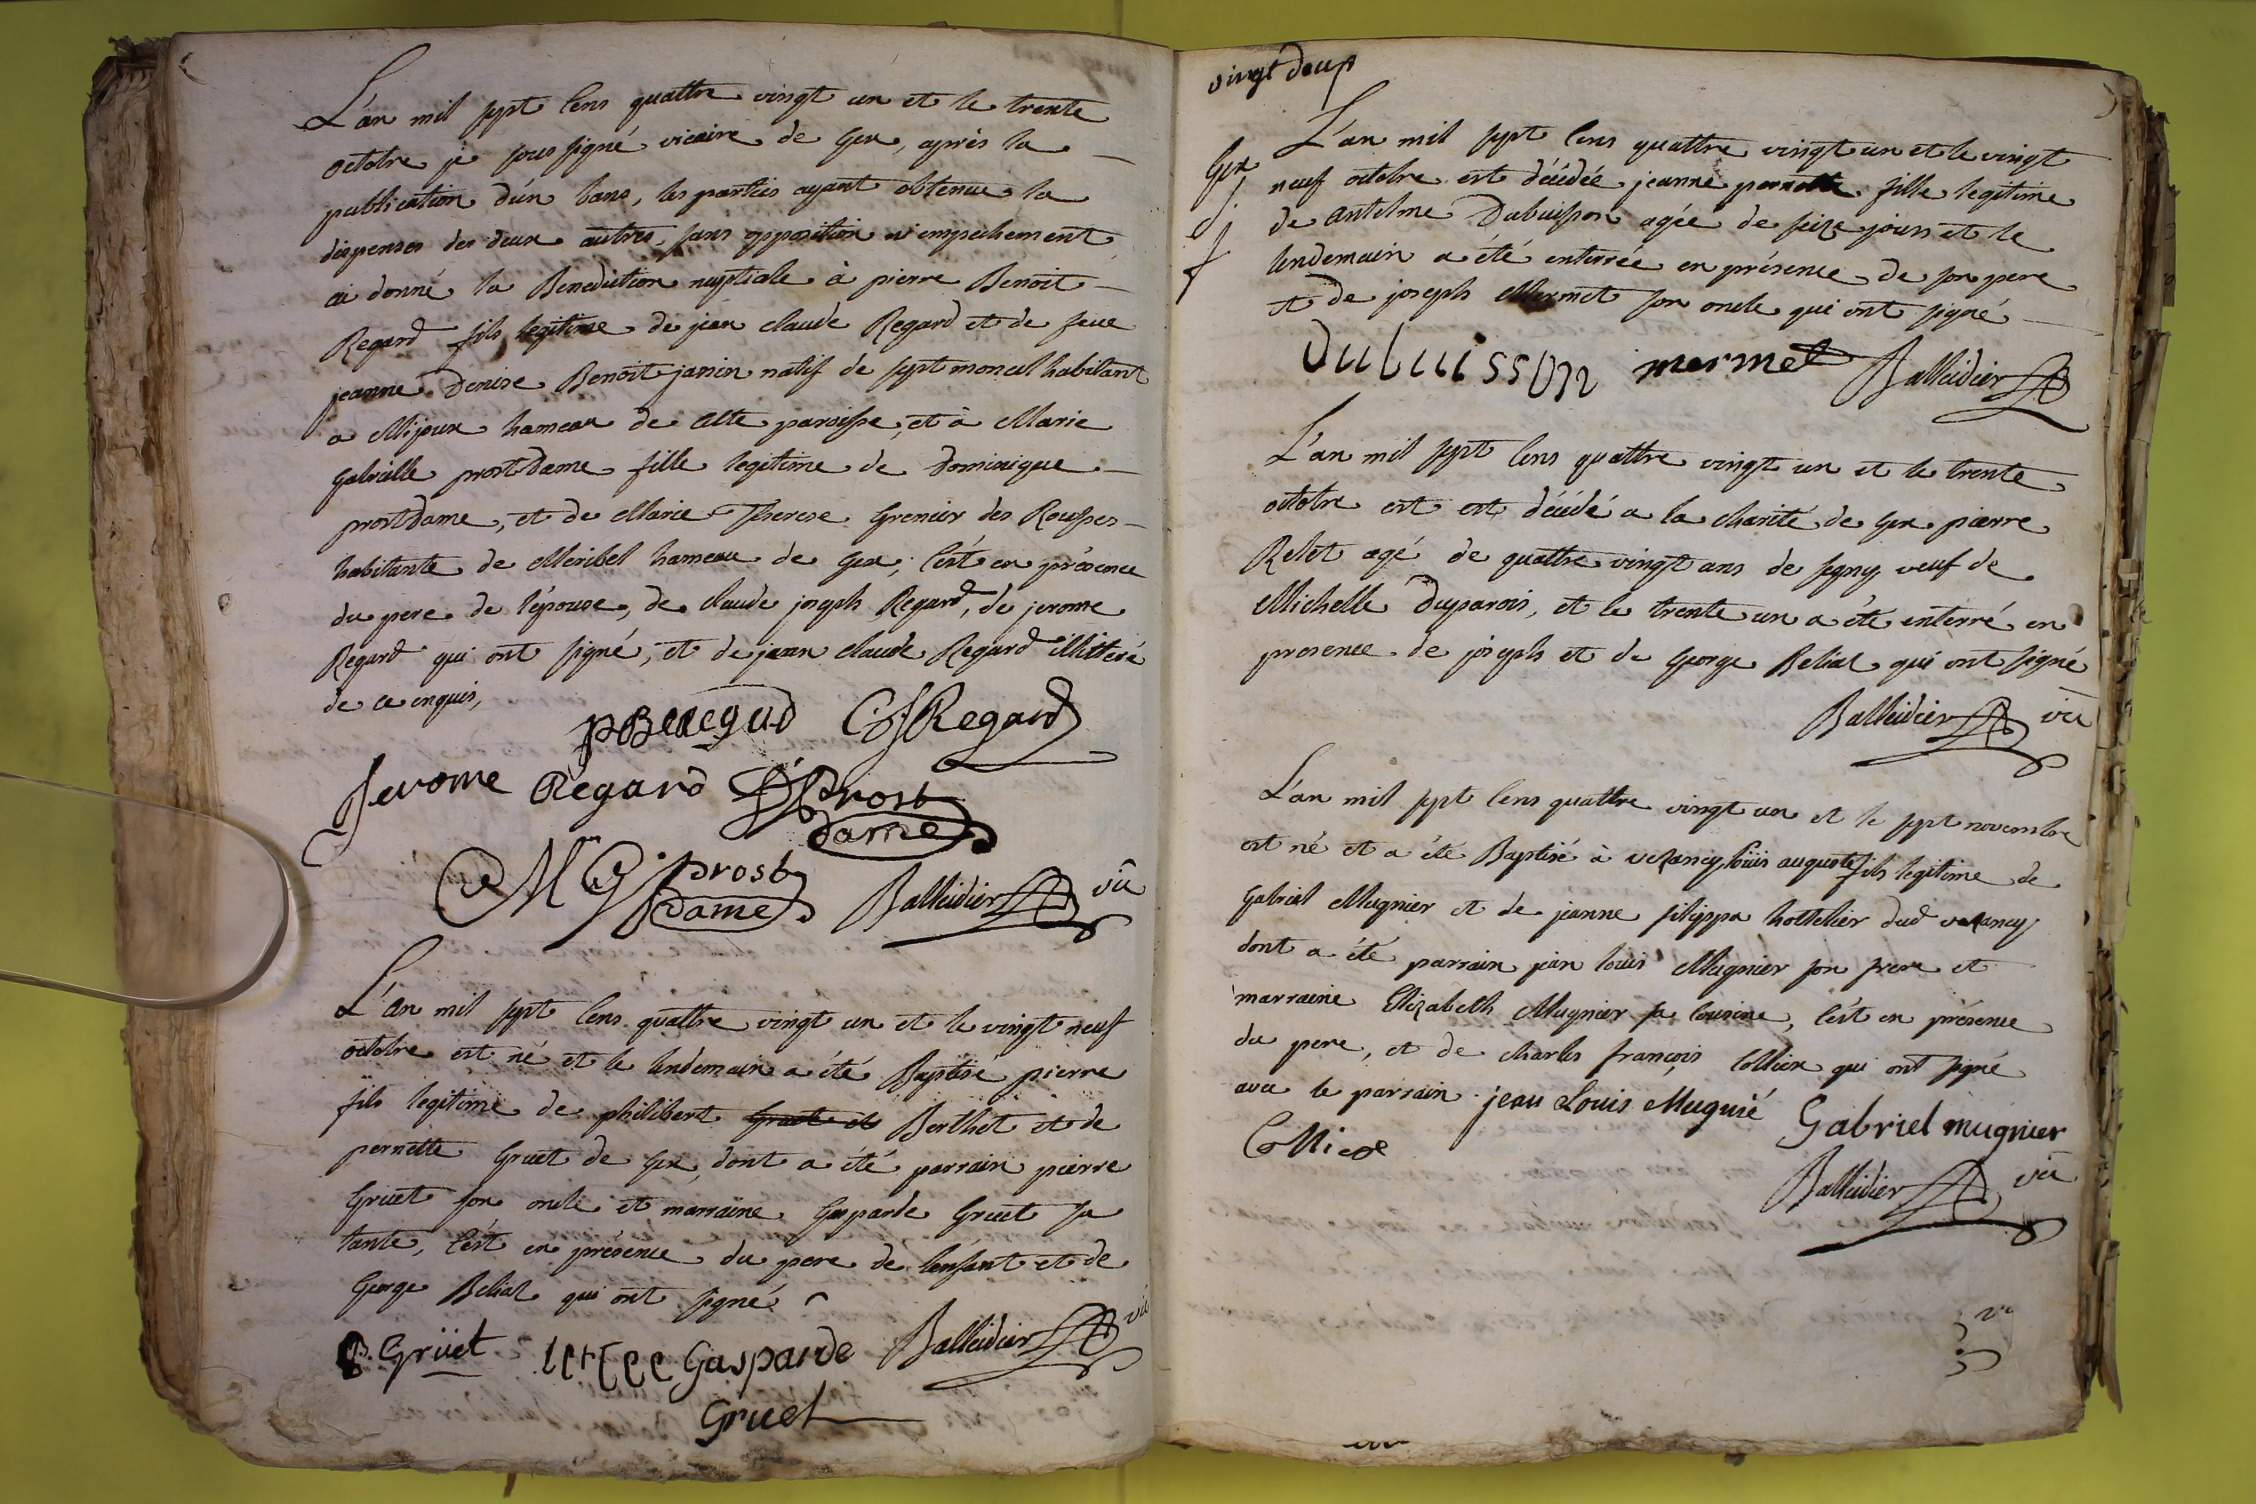 L'an mil sept Cens quattre vingt un et le trente
octobre je sous signé vicaire de Gex, après la
publication d'un bans, les parties ayant obtenue la
dispenses des deux autres, sans opposition ni empechement
ai donné la Benediction nuptiale à pierre Benoit
Regard fils legitime de jean claude Regard et de feue
jeanne Denise Benoit-janin natif de sept moncel habitant
a Mijoux hameau de cette paroisse, et à Marie
Gabrielle prost Dame fille legitime de Dominique
prost Dame, et de Marie Therese Grenier des Rousses
habitante de Meribel hameau de Gex; C'est en présence
du pere de l'épouse, de claude joseph Regard, de jerome
Regard qui ont signé, et de jean claude Regard illitteré
de ce enquis,
PBRegard CJRegard
Jerome Regard D Prost
Dame
MG prost
Dame Balleidier vic
L'an mil sept Cens quattre vingt un et le vingt neuf
octobre est né et le lendemain a été Baptisé pierre
fils legitime de philibert Berthet et de
pernette Gruet de Gex, dont a été parrain pierre
Gruet son oncle et marraine Gasparde Gruet sa
tante, C'est en présence du pere de l'enfant et de
George Belial qui ont signé
P. Grüet Gasparde Balleidier vic
Gruet
vingt deux
L'an mil sept Cens quattre vingt un et le vingt
Gex neuf octobre est décédée jeanne pernette fille legitime
de Antelme Dubuisson agée de seize jours et le
lendemain a été enterrée en présence de son pere
et de joseph Mermet son oncle qui ont signé
Dubuisson mermet Balleidier
L'an mil sept Cens quattre vingt un et le trente
octobre est est décédé a la charité de Gex pierre
Relet agé de quattre vingt ans de segny veuf de
Michelle Duparois, et le trente un a été enterré en
presence de joseph et de George Belial qui ont signé
Balleidier vic
L'an mil sept Cens quattre vingt un et le sept novembre
est né et a été Baptisé à vezancy loüis auguste fils legitime de
Gabriel Mugnier et de jeanne filippa hottelier dud vezancy
dont a été parrain jean louis Mugnier son frere et
marraine Elizabeth Mugnier sa cousine, C'est en présence
du pere, et de charles françois Collier qui ont signé
avec le parrain. jean Louis Mugnié Gabriel mugnier
Collier
Balleidier vic